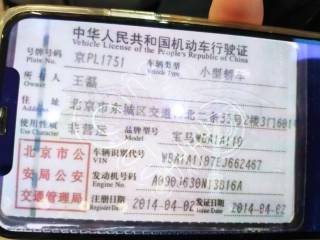 中华人民共和国机动车行驶证
Vehicle License of the People's Republic of China
号牌号码 京PL1751 车辆类型 小型轿车
Plate No. Vehicle Type
所有人 王磊
Owner
住址 北京市东城区交道 北二条33号2楼3门601
Address
使用性质 非营运 品牌型号 宝马
Use Character Model
北京市公安局公安交通管理局
车辆识别代号
VIN
发动机号码
Engine No.
注册日期 2014-04-02 发证日期 2014-04-02
Register Date Issue Date